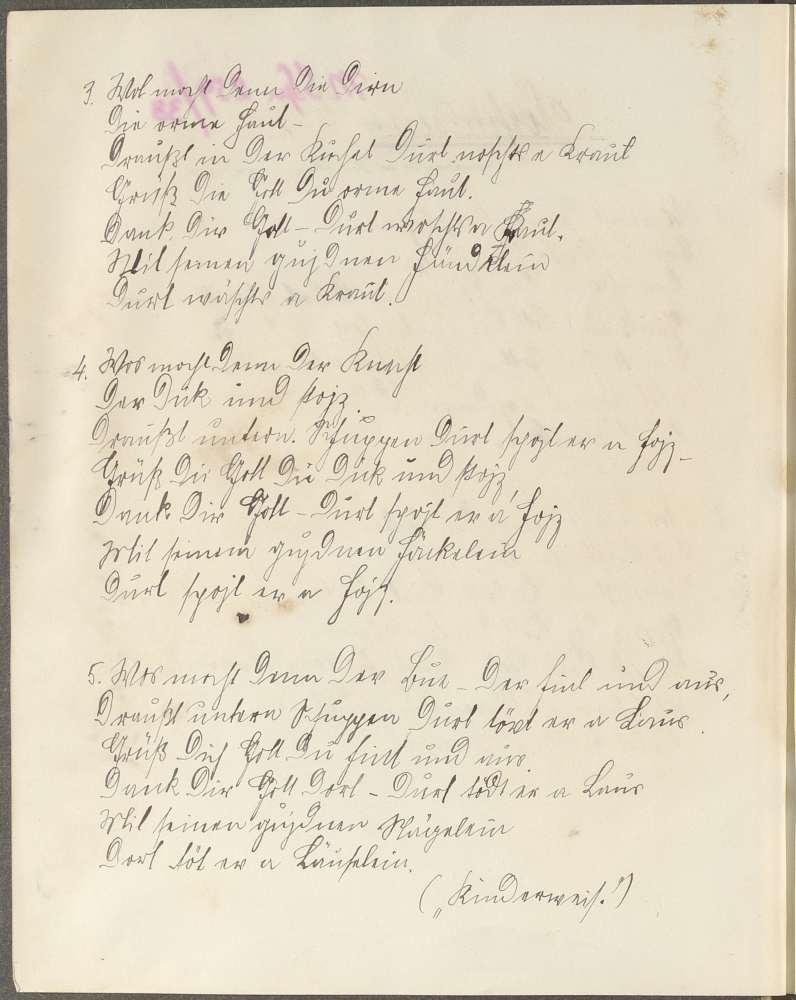 3. Wos mocht denn die Dirn
Die orme Haut –
Draußt in der Kuchel Durt woscht e Kraut
Grüß die Gott Du orme Haut.
Dank Dir Gott – Durt woschts a Kraut.
Mit seinen gujdnen Händlein
Durt wäschts a Kraut.
4. Wos mocht denn der Knecht
Der Dick und stojz
Draußt untern Schuppen Durt spojt er a Hojz –
Grüß Die Gott Du Dick und stojz
Dank Dir Gott – Durt spojt er a Hojz
Mit seinem gujdnen Häckelein
Durt spojt er a Hojz.
5. Wos mocht denn der Bue – der ein und aus,
Draußt untern Schuppen Durt tödt er a Laus.
Grüß Dich Gott Du ein und aus
Dank Dir Gott Dort – Durt tödt er a Laus
Mit seinen gujdnen Nägelein
Dort töt er a Läuselein.
("Kinderweis.")